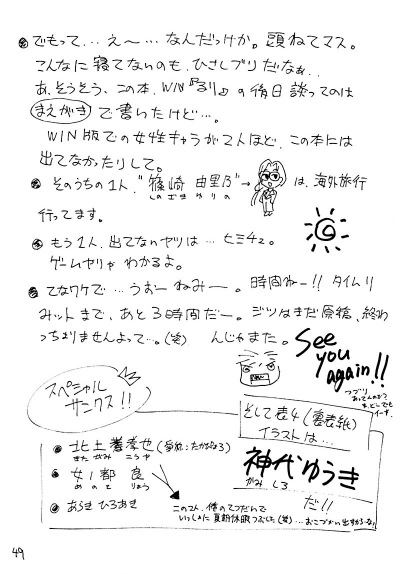 でもって…え〜…なんだっけか。頭ねてマス。
こんなに寝てないのも、ひさしブリだなぁ..
あ、そうそう、この本、WIN『るり』の後日談ってのは
まえがきで書いたけど…。
WIN版での女性キャラが2人ほど、この本には
出てなかたりして。
そのうちの1人、"篠崎 由里乃"→ は、海外旅行
しのざき ゆりの
行ってます。
もう1人、出てないヤツは…ヒミ42。
ゲームヤリゃ わかるよ。
てなワケで…うおーねみー。時間ねー!! タイムリ
ミットまで、あと3時間だー。ジツはまだ原稿、終わ
っちょりませんよって…。(笑) んじゃまた。
See
you
again!!
スペシャル
サンクス!!
北上 孝也 (
きたがみ こうや
女ノ都 良
めのと りょう
あらき ひろあき
この2人、僕のてつだいで
いっしょに夏期休暇つぶした(笑)…
そして表4(裏表紙)
イラストは…
神代ゆうき
かみしろ
だ!!
49